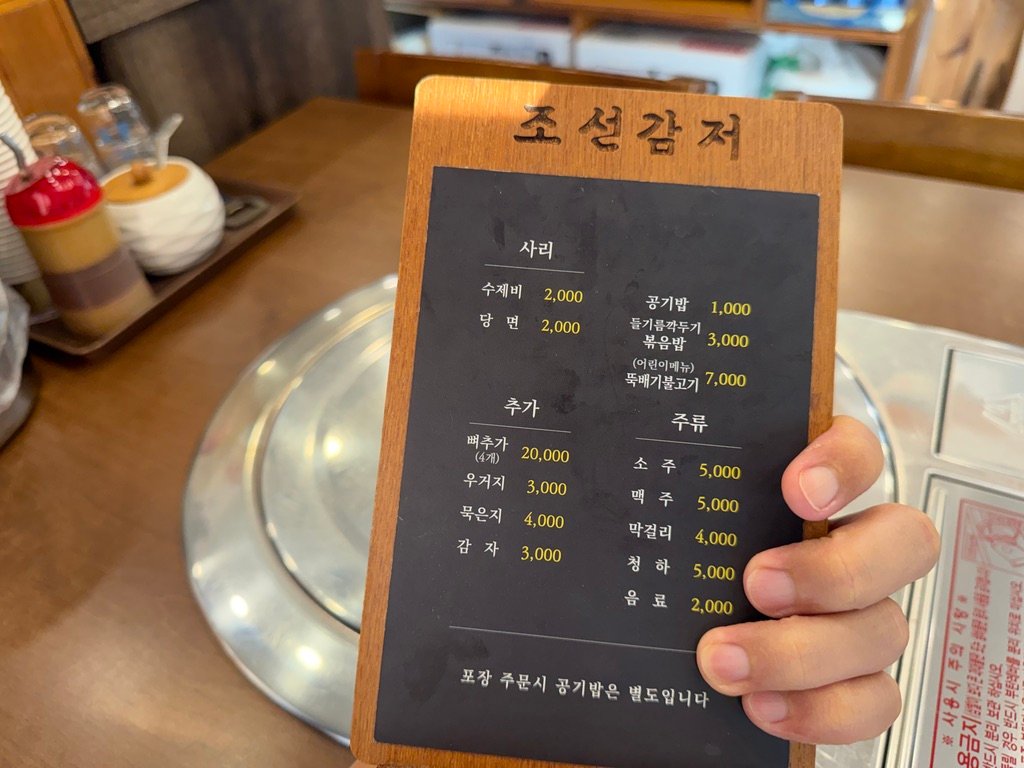 조선감저
사리
수제비 2,000
당 면 2,000
공기밥 1,000
들기름깍두기
볶음밥 3,000
(어린이메뉴)
뚝배기불고기 7,000
추가
뼈추가 20,000
(4개)
우거지 3,000
묵은지 4,000
감 자 3,000
주류
소 주 5,000
맥 주 5,000
막걸리 4,000
청 하 5,000
음 료 2,000
포장 주문시 공기밥은 별도입니다
※ 사용시 주의 사항 ※